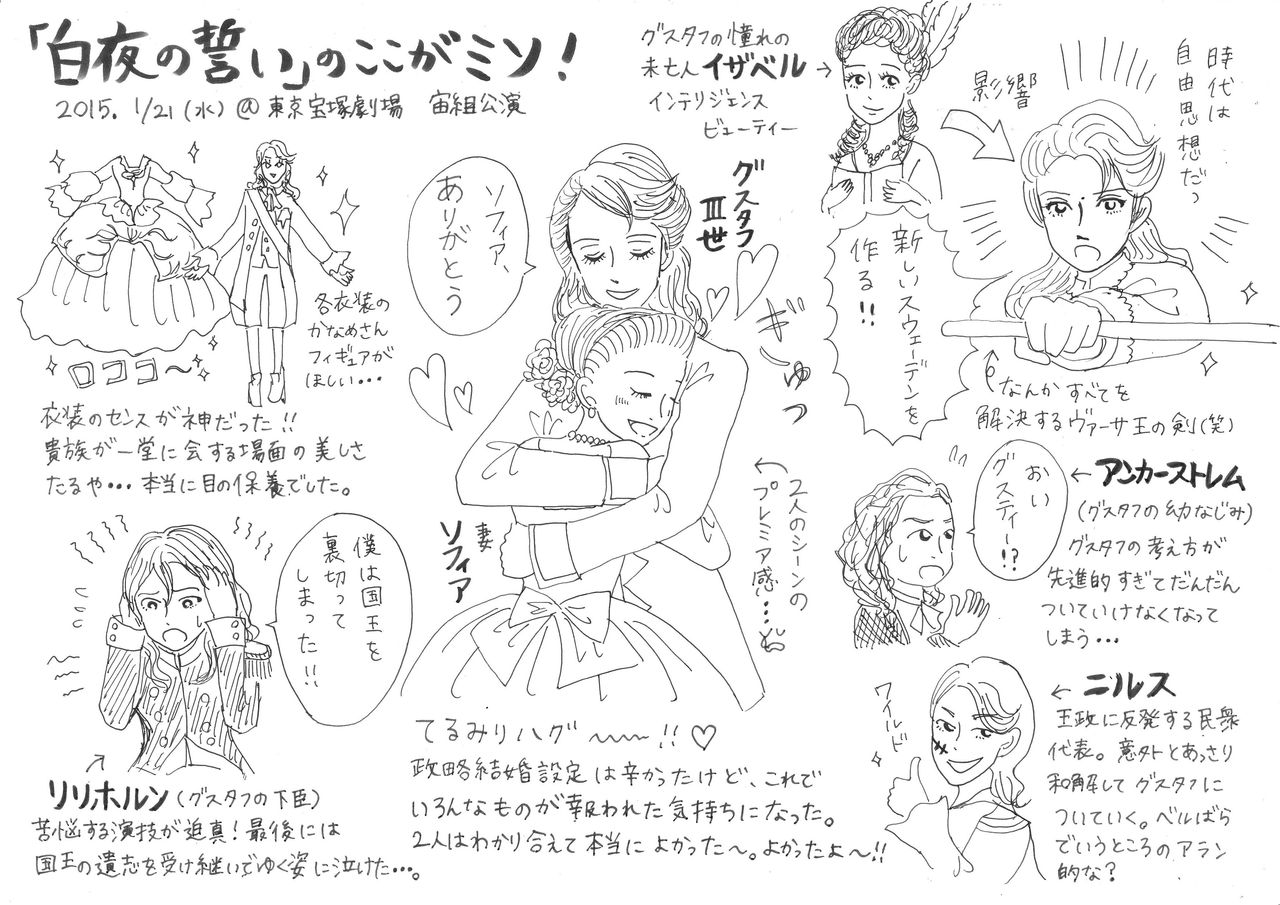 「白夜の誓い」のここがミソ!
2015. 1/21(水)@東京宝塚劇場 宙組公演
ロココ〜
各衣装の
かなめさん
フィギュアが
ほしい…
衣装のセンスが神だった!!
貴族が一堂に会する場面の美しさ
たるや…本当に目の保養でした。
僕は国王を
裏切って
しまった!!
リリホルン(グスタフの下臣)
苦悩する演技が迫真!最後には
国王の遺志を受け継いでゆく姿に泣けた…。
ソフィア、
ありがとう
グスタフ
Ⅲ世
ぎゅっ
妻
ソフィア
←2人のシーンの
プレミア感…
てるみりハグ〜〜!!♡
政略結婚設定は辛かったけど、これで
いろんなものが報われた気持ちになった。
2人はわかり合えて本当によかった〜。よかったよ〜!!
グスタフの憧れの
未亡人イザベル→
インテリジェンス
ビューティー
影響
時代は
自由思想だっ
新しいスウェーデンを
作る!!
なんかすべてを
解決するヴァーサ王の剣(笑)
おい
グスティー!?
←アンカーストレム
(グスタフの幼なじみ)
グスタフの考え方が
先進的すぎてだんだん
ついていけなくなって
しまう…
ワイルド
←ニルス
王政に反発する民衆
代表。意外とあっさり
和解してグスタフに
ついていく。ベルばら
でいうところのアラン
的な?